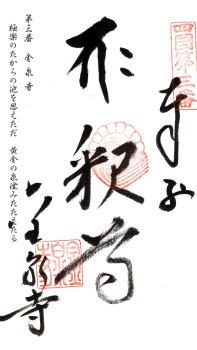 四国第三番
奉納
釈尊
金泉寺
第三番 金泉寺
極楽のたからの池を思えただ 黄金の泉澄みたたえたる